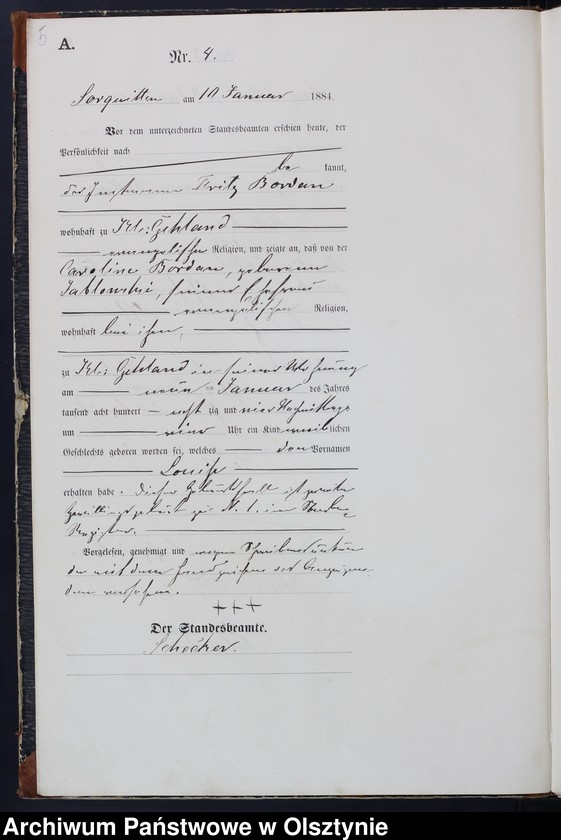 5
A.
Nr. 4.
Sorquitten am 10 Januar 1884.
Vor dem unterzeichneten Standesbeamten erschien heute, der
Persönlichkeit nach
be kannt,
der Instmann Fritz Bordan
wohnhaft zu Kl: Gehland
evangelischer Religion, und zeigte an, daß von der
Caroline Bordan, geborenen
Jablonski, seiner Ehefrau
evangelischen Religion,
wohnhaft bei ihm,
zu Kl: Gehland in seiner Wohnung
am neun ten Januar des Jahres
tausend acht hundert acht zig und vier Nachmittags
um Uhr ein Kind weiblichen
Geschlechts geboren worden sei, welches den Vornamen
Louise
erhalten habe. Dieser Geburtsfall ist zweite
Zwillingsgeburt zu N. 1. im Sterbe-
Register.
Vorgelesen, genehmigt und wegen Schreibensunkun
de mit dem Handzeichen des Anzeigen
den versehen.
+++
Der Standesbeamte.
Schecker.
Archiwum Państwowe w Olsztynie